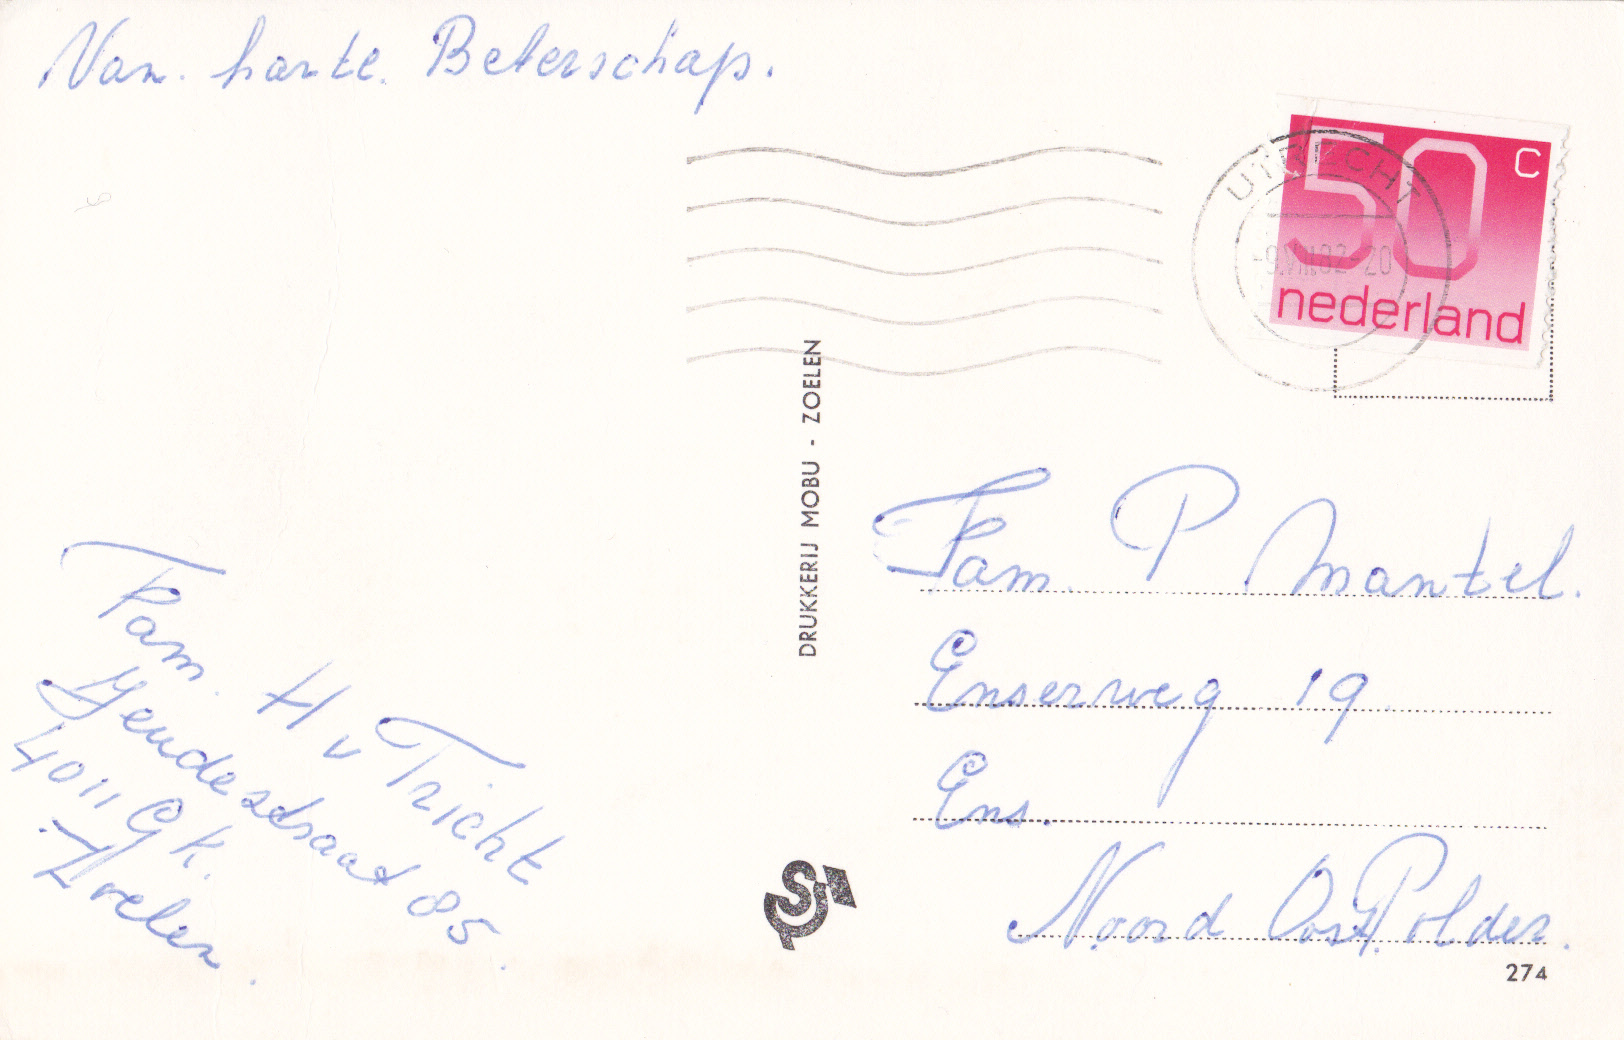 Van harte Beterschap.
UTRECHT
-9.VIII.82-20
50 c
nederland
DRUKKERIJ MOBU - ZOELEN
Fam. P Mantel.
Enserweg 19
Ens.
Noord Oost Polder.
Fam. H v Tricht
85
4011 GK.
Zoelen.
274